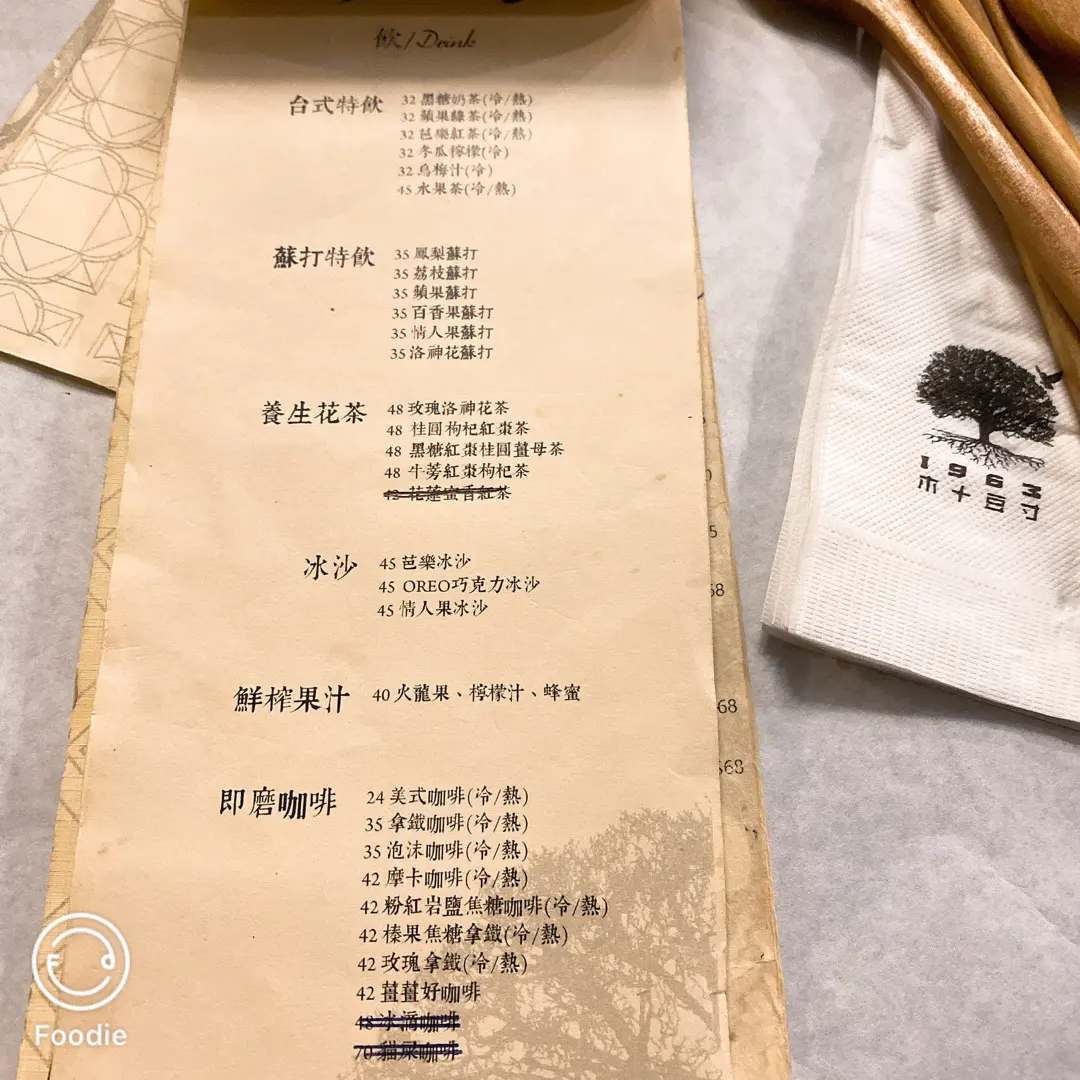 飲/Drink
台式特飲
32 黑糖奶茶(冷/熱)
32 蘋果綠茶(冷/熱)
32 芭樂紅茶(冷/熱)
32 冬瓜檸檬(冷)
32 烏梅汁(冷)
45 水果茶(冷/熱)
蘇打特飲
35 鳳梨蘇打
35 荔枝蘇打
35 蘋果蘇打
35 百香果蘇打
35 情人果蘇打
35 洛神花蘇打
養生花茶
48 玫瑰洛神花茶
48 桂圓枸杞紅棗茶
48 黑糖紅棗桂圓薑母茶
48 牛蒡紅棗枸杞茶
42 花蓮蜜香紅茶
冰沙
45 芭樂冰沙
45 OREO巧克力冰沙
45 情人果冰沙
鮮榨果汁
40 火龍果、檸檬汁、蜂蜜
即磨咖啡
24 美式咖啡(冷/熱)
35 拿鐵咖啡(冷/熱)
35 泡沫咖啡(冷/熱)
42 摩卡咖啡(冷/熱)
42 粉紅岩鹽焦糖咖啡(冷/熱)
42 榛果焦糖拿鐵(冷/熱)
42 玫瑰拿鐵(冷/熱)
42 薑薑好咖啡
48 冰滴咖啡
70 貓屎咖啡
68
68
1963
Foodie